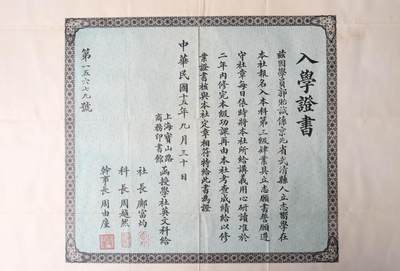 入學證書
茲因學員郭貽誠係京兆省武清縣人立志嚮學在
本社報名入本科第三級肄業具立志願書誓願遵
守社章每日依時將本社所給講義用心研讀准於
二年內修完本級功課再由本社考查成績給以修
業證書核與本社定章相符特給此書為證
上海寶山路
商務印書館
函授學社英文科給
社長鄺富灼
科長周越然
幹事長周由廑
中華民國十五年九月三十日
第一五六七九號